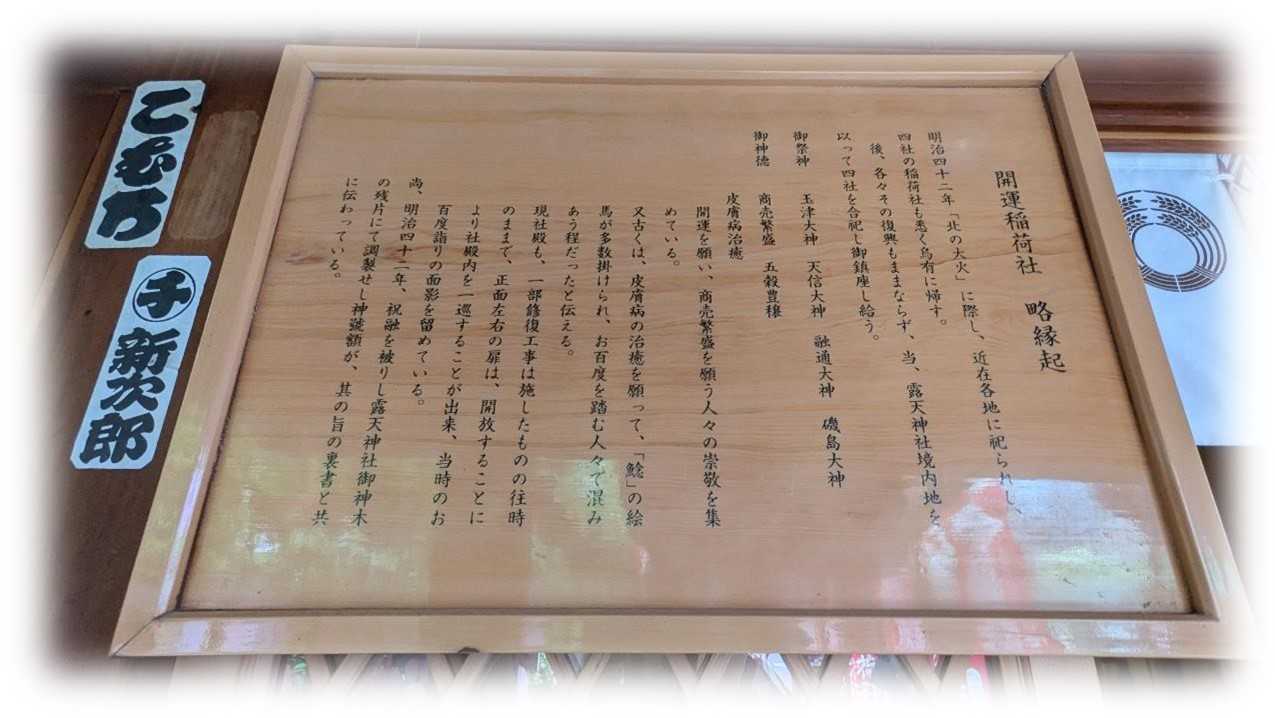 開運稲荷社 略縁起
明治四十二年「北の大火」に際し、近在各地に祀られし、
四社の稲荷社も悉く烏有に帰す。
後、各々その復興もままならず、当、露天神社境内地を
以って四社を合祀し御鎮座し給う。
御祭神 玉津大神 天信大神 融通大神 磯島大神
御神徳 商売繁盛 五穀豊穣
皮膚病治癒
開運を願い、商売繁盛を願う人々の崇敬を集
めている。
又古くは、皮膚病の治癒を願って、「鯰」の絵
馬が多数掛けられ、お百度を踏む人々で混み
あう程だったと伝える。
現社殿も、一部修復工事は施したものの往時
のままで、正面左右の扉は、開放することに
より社殿内を一巡することが出来、当時のお
百度詣りの面影を留めている。
尚、明治四十二年、祝融を被りし露天神社御神木
の残片にて調製せし神號額が、其の旨の裏書と共
に伝わっている。
こむら
千 新次郎